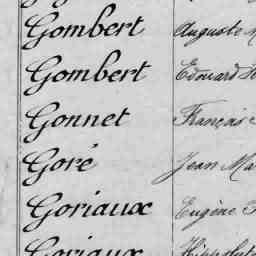 Gombert Auguste
Gombert Edouard
Gonnet François
Goré Jean
Goriaux Eugène
Goriaux Hippolyte